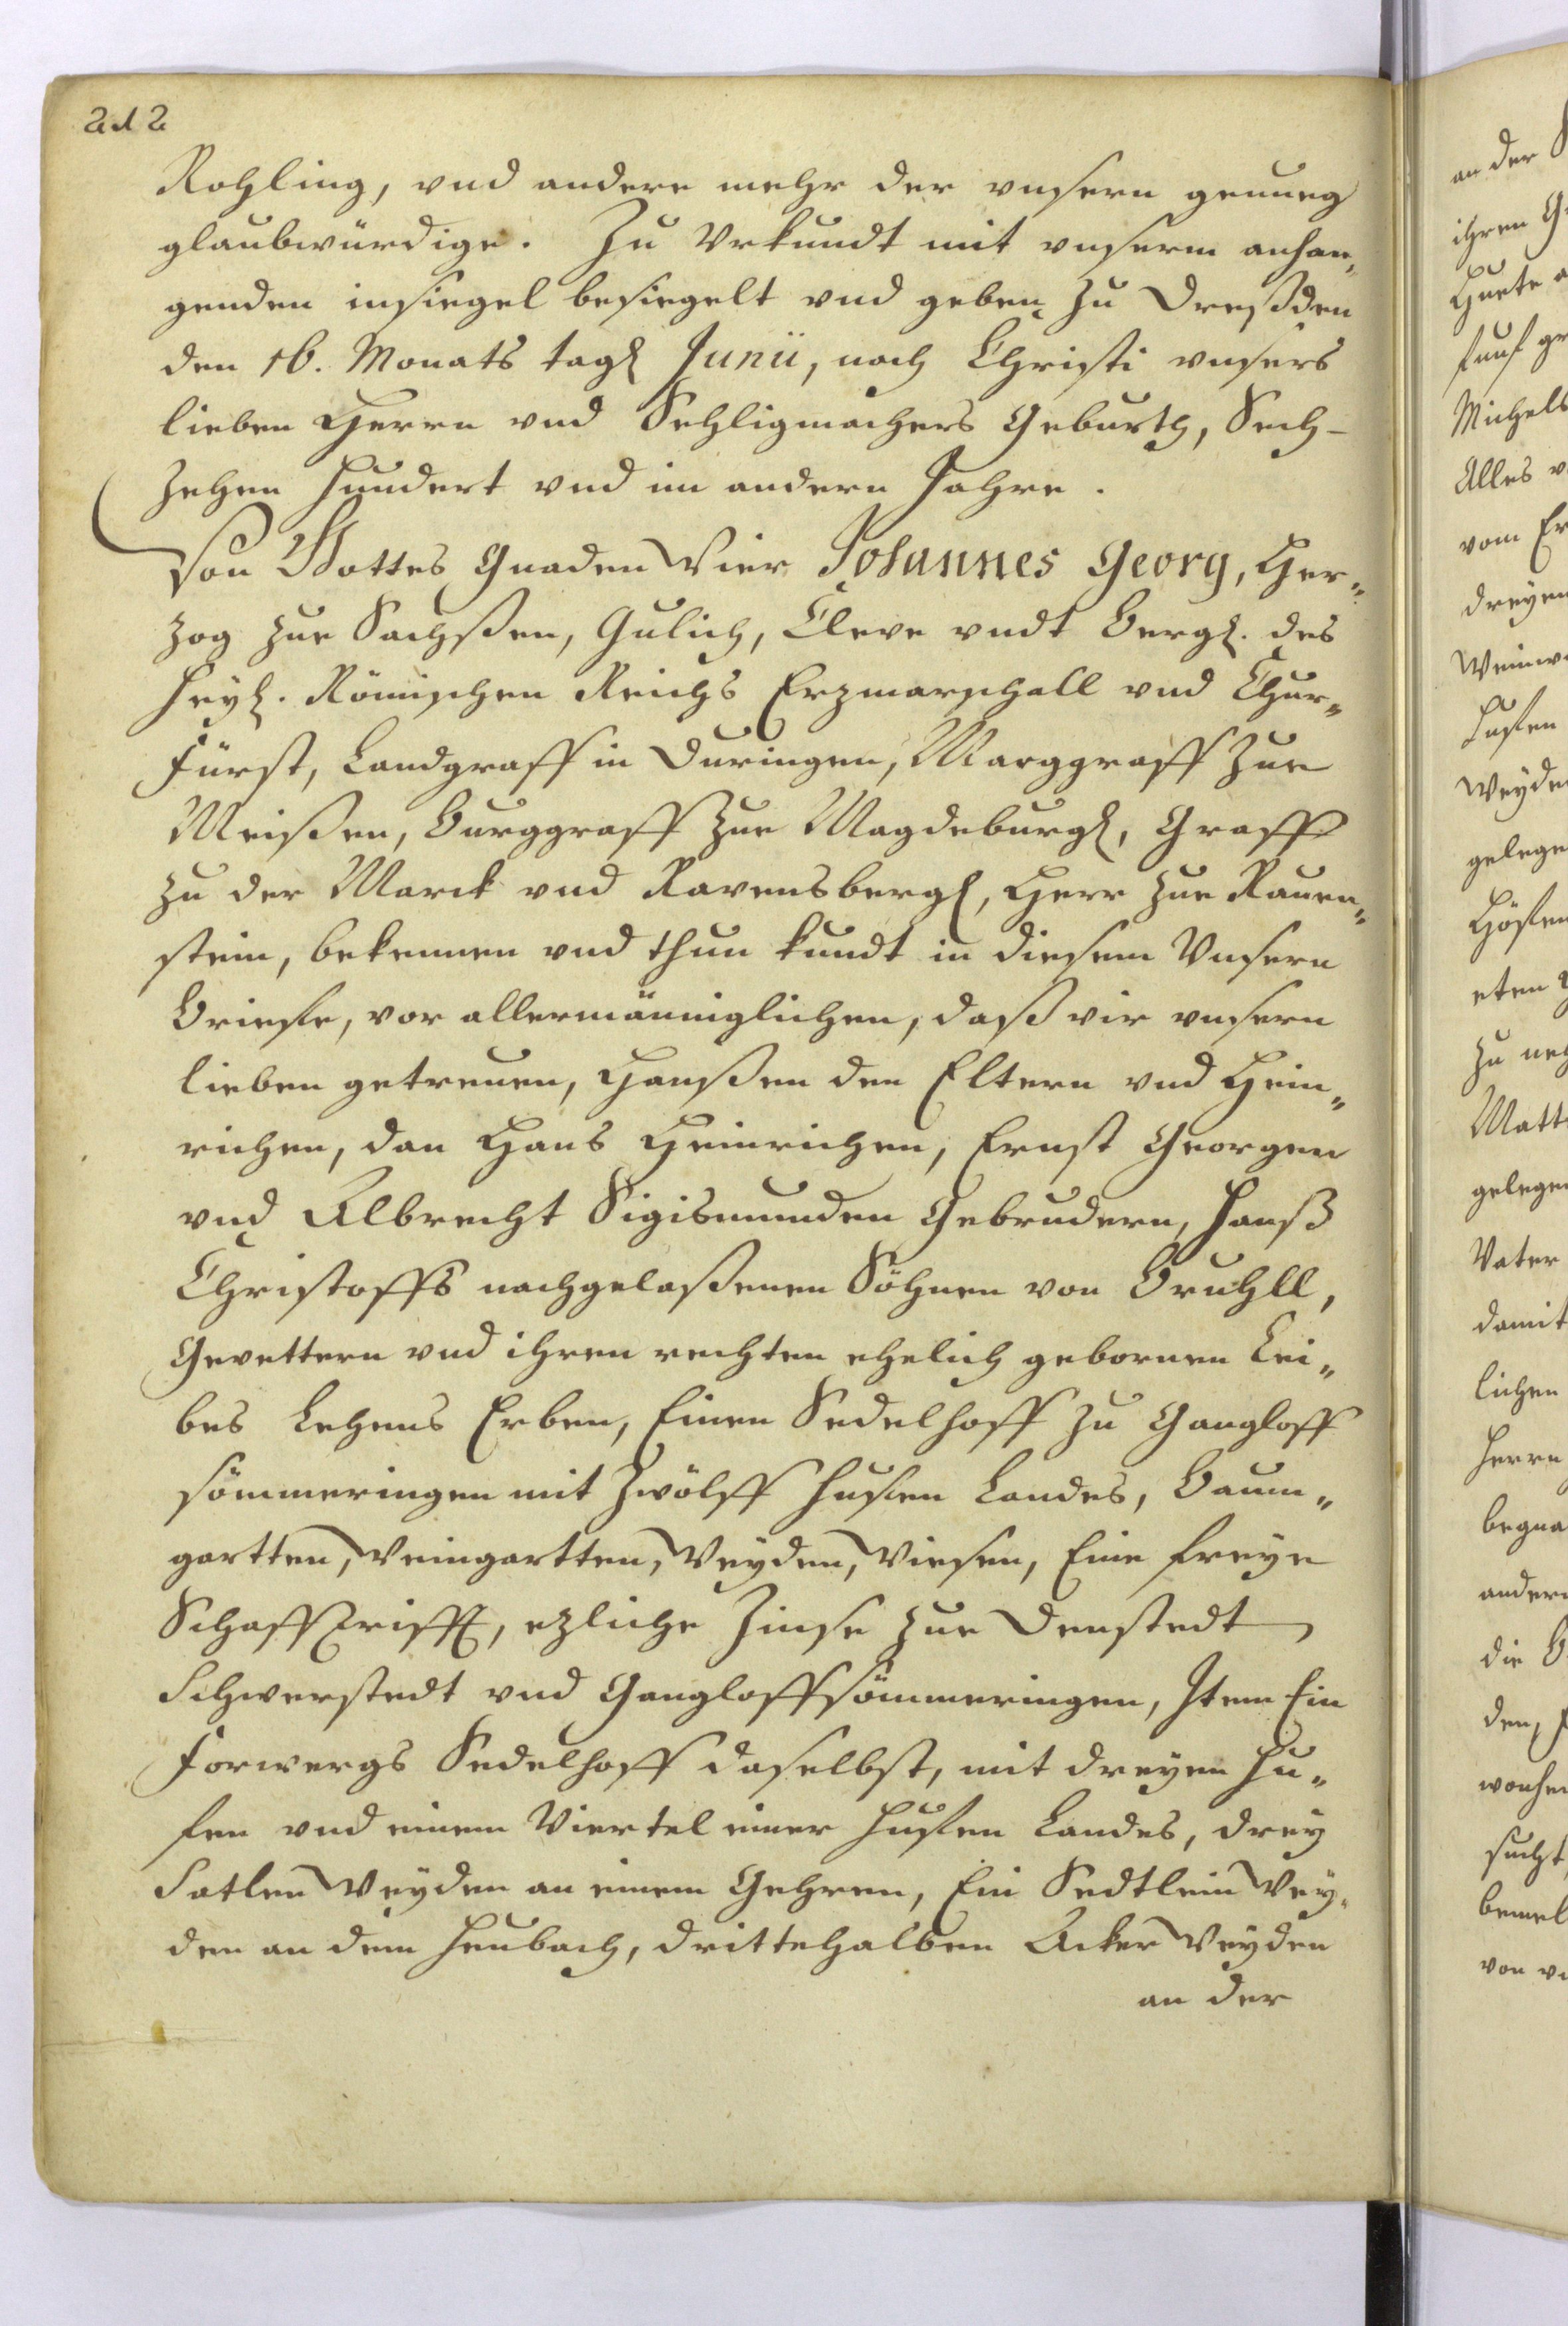 212
Rohling, vnd andere mehr der vnsern genueg
glaubwürdige. Zu Vrkundt mit vnserm anhan„
genden insiegel besiegelt vnd geben zu Dreßden
den 16. Monats tags Junii, nach Christi vnsers
lieben Herrn vnd Sehligmachers Geburth, Sech-
zehen hundert vnd im andern Jahre.
Von Gottes Gnaden Wier Johannes Georg, Her„
zog zue Sachßen, Gulich, Cleve vndt Berg. des
Heyl. Römischen Reichs Erzmarschall vnd Chur„
Fürst, Landgraff in Duringen, Marggraff zue
Meißen, Burggraff zue Magdeburg, Graff
zu der Marck vnd Ravensberg, Herr zue Raven„
stein, bekennen vnd thun kundt in diesem Vnsern
Briefe, vor allermänniglichen, daß wir vnsern
lieben getreuen, Hanßen den Eltern vnd Hein„
richen, dan Hans Heinrichen, Ernst Georgen
vnd Albrecht Sigismunden Gebrudern, Hanß
Christoffs nachgelaßenen Söhnen von Bruhll,
Gevettern vnd ihren rechten ehelich gebornen Lei„
bes Lehens Erben, Einen Sedelhoff zu Gangloff
sömmeringen mit zwölff Hufen Landes, Baum„
gartten, Weingartten, Weyden, Wiesen, Eine freye
Schafftrifft, ezliche Zinse zue Denstedt
Schwerstedt vnd Gangloffsömmeringen, Item Ein
Forwergs Sedelhoff daselbst, mit dreyen Hu„
fen vnd einem Viertel einer Hufen Landes, drey
Satlen Weyden an einem Gehren, Ein Sedtlein Wey„
den an dem Heubach, drittehalben Acker Weyden
an der
an der
ihren
Huete
funf
Michels
Alles
vom
dreyen
Hufen
gelegen
Höfen
zu
gelegen
Vater
damit
lichen
Herrn
andern
die
den,
sucht
von